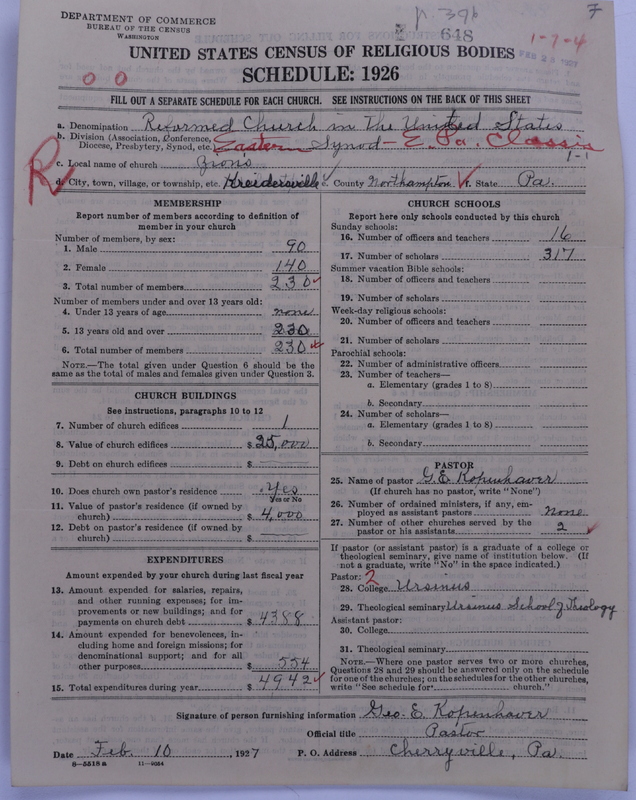 p. 396
7
DEPARTMENT OF COMMERCE
BUREAU OF THE CENSUS
WASHINGTON
648
1-7-4
UNITED STATES CENSUS OF RELIGIOUS BODIES
SCHEDULE: 1926
0 0
FILL OUT A SEPARATE SCHEDULE FOR EACH CHURCH. SEE INSTRUCTIONS ON THE BACK OF THIS SHEET
a. Denomination Reformed Church in The United States
b. Division (Association, Conference, Diocese, Presbytery, Synod, etc. Eastern Synod - E. Pa. Classis
1-1
c. Local name of church Zions
R
d. City, town, village, or township, etc. Kreidersville e. County Northampton f. State Pa.
MEMBERSHIP
Report number of members according to definition of
member in your church
Number of members, by sex:
1. Male 90
2. Female 140
3. Total number of members 230
Number of members under and over 13 years old:
4. Under 13 years of age none
5. 13 years old and over 230
6. Total number of members 230
NOTE.—The total given under Question 6 should be the
same as the total of males and females given under Question 3.
CHURCH BUILDINGS
See instructions, paragraphs 10 to 12
7. Number of church edifices 1
8. Value of church edifices $ 25,000
9. Debt on church edifices $
10. Does church own pastor's residence Yes
Yes or No
11. Value of pastor's residence (if owned by
church) $ 4,000
12. Debt on pastor's residence (if owned by
church) $
EXPENDITURES
Amount expended by your church during last fiscal year
13. Amount expended for salaries, repairs,
and other running expenses; for im-
provements or new buildings; and for
payments on church debt $ 4388
14. Amount expended for benevolences, in-
cluding home and foreign missions; for
denominational support; and for all
other purposes $ 554
15. Total expenditures during year $ 4942
CHURCH SCHOOLS
Report here only schools conducted by this church
Sunday schools:
16. Number of officers and teachers 16
17. Number of scholars 317
Summer vacation Bible schools:
18. Number of officers and teachers
19. Number of scholars
Week-day religious schools:
20. Number of officers and teachers
21. Number of scholars
Parochial schools:
22. Number of administrative officers
23. Number of teachers—
a. Elementary (grades 1 to 8)
b. Secondary
24. Number of scholars—
a. Elementary (grades 1 to 8)
b. Secondary
PASTOR
25. Name of pastor G. E. Kopenhaver
(If church has no pastor, write "None")
26. Number of ordained ministers, if any, em-
ployed as assistant pastors None
27. Number of other churches served by the
pastor or his assistants 2
If pastor (or assistant pastor) is a graduate of a college or
theological seminary, give name of institution below. (If
not a graduate, write "No" in the space indicated.)
Pastor: 2
28. College Ursinus
29. Theological seminary Ursinus School of Theology
Assistant pastor:
30. College
31. Theological seminary
NOTE.—Where one pastor serves two or more churches,
Questions 28 and 29 should be answered only on the schedule
for one of the churches; on the schedules for the other churches,
write "See schedule for church."
Signature of person furnishing information Geo. E. Kopenhaver
Official title Pastor
Date Feb. 10 , 1927 P. O. Address Cherryville, Pa.
8—5518 a 11—9054